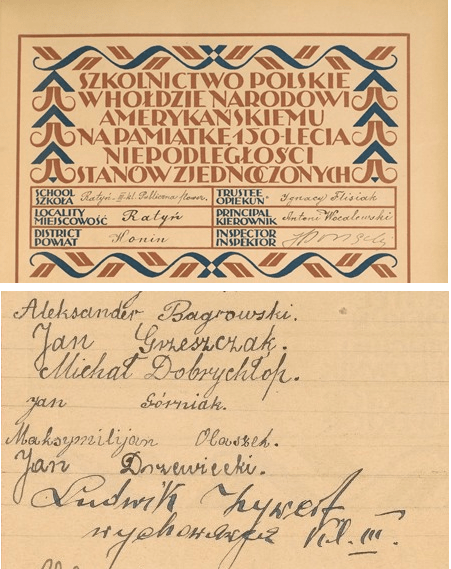 SZKOLNICTWO POLSKIE
W HOŁDZIE NARODOWI
AMERYKAŃSKIEMU
NA PAMIĄTKĘ 150-LECIA
NIEPODLEGŁOŚCI
STANÓW ZJEDNOCZONYCH
SCHOOL
SZKOŁA Ratyń II-kl. Publiczna
LOCALITY
MIEJSCOWOŚĆ Ratyń
DISTRICT
POWIAT Konin
TRUSTEE
OPIEKUN Ignacy Flisiak
PRINCIPAL
KIEROWNIK Antoni
INSPECTOR
INSPEKTOR
Aleksander Bagrowski.
Jan Grzeszczak.
Michał Dobrychłóp.
Jan Górniak.
Maksymilijan Olaszek.
Jan Drzewiecki.
Ludwik Żywert
wychowawca kl. III.